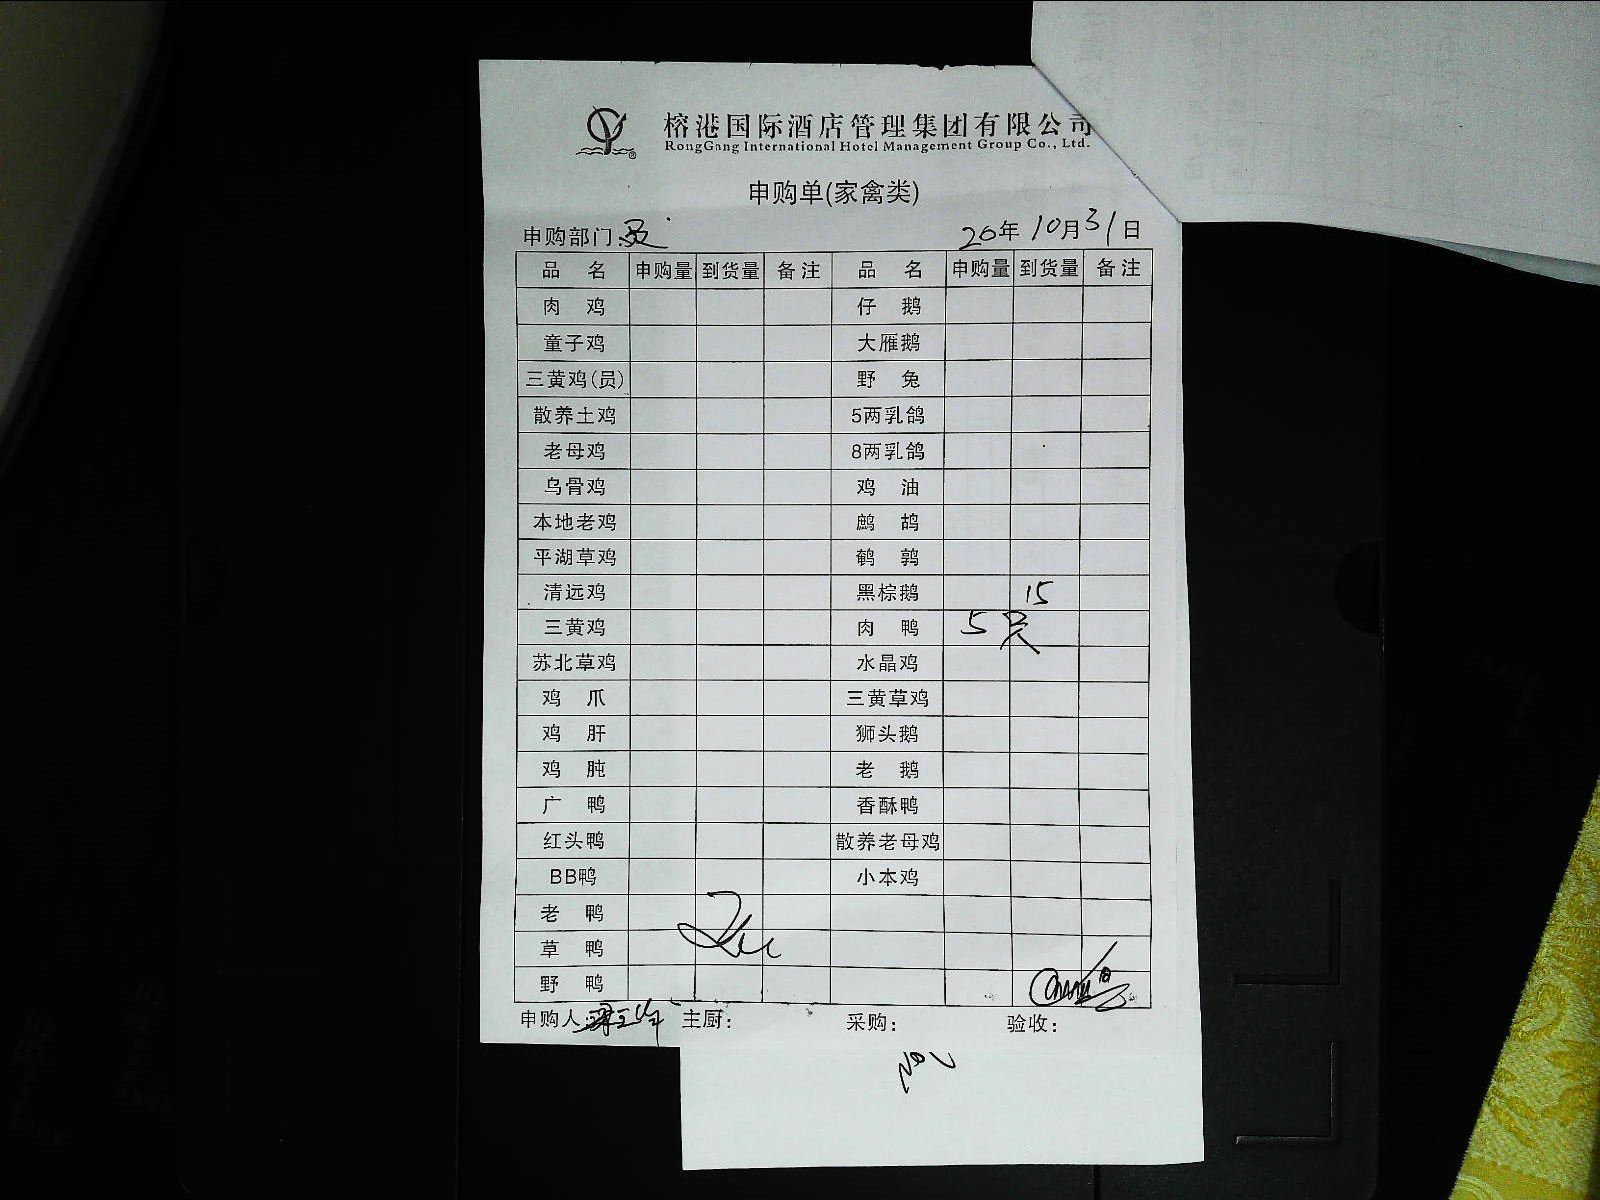 榕港国际酒店管理集团有限公司
RongGang International Hotel Management Group Co., Ltd.
申购单(家禽类)
申购部门: 20年10月31日
品名 申购量 到货量 备注 品名 申购量 到货量 备注
肉鸡 仔鹅
童子鸡 大雁鹅
三黄鸡(员) 野兔
散养土鸡 5两乳鸽
老母鸡 8两乳鸽
乌骨鸡 鸡油
本地老鸡 鹧鸪
平湖草鸡 鹌鹑
清远鸡 黑棕鹅 15
三黄鸡 肉鸭 5只
苏北草鸡 水晶鸡
鸡爪 三黄草鸡
鸡肝 狮头鹅
鸡肫 老鹅
广鸭 香酥鸭
红头鸭 散养老母鸡
BB鸭 小本鸡
老鸭
草鸭
野鸭
申购人: 主厨: 采购: 验收: